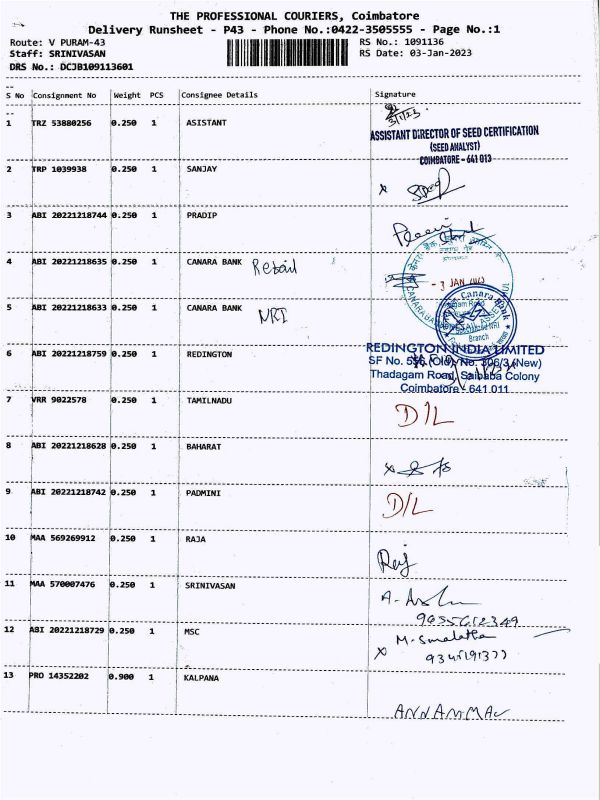 THE PROFESSIONAL COURIERS, Coimbatore
Delivery Runsheet - P43 - Phone No.:0422-3505555 - Page No.:1
Route: V PURAM-43 RS No.: 1091136
Staff: SRINIVASAN RS Date: 03-Jan-2023
DRS No.: DCJB109113601
S No Consignment No Weight PCS Consignee Details Signature
1 TRZ 53880256 0.250 1 ASISTANT
3/1/23
ASSISTANT DIRECTOR OF SEED CERTIFICATION
(SEED ANALYST)
COIMBATORE - 641 013
2 TRP 1039938 0.250 1 SANJAY
3 ABI 20221218744 0.250 1 PRADIP
4 ABI 20221218635 0.250 1 CANARA BANK Retail
- 3 JAN
5 ABI 20221218633 0.250 1 CANARA BANK NRI
Canara Bank
Branch
6 ABI 20221218759 0.250 1 REDINGTON
REDINGTON INDIA LIMITED
SF No. 556 (Old), No. 306/3 (New)
Thadagam Road, Saibaba Colony
Coimbatore - 641 011
7 VRR 9022578 0.250 1 TAMILNADU D/L
8 ABI 20221218628 0.250 1 BAHARAT
9 ABI 20221218742 0.250 1 PADMINI D/L
10 MAA 569269912 0.250 1 RAJA Raj
11 MAA 570007476 0.250 1 SRINIVASAN
12 ABI 20221218729 0.250 1 MSC
13 PRO 14352202 0.900 1 KALPANA
ANNAMMAL